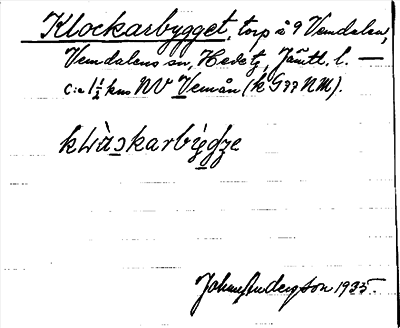 Klockarbygget, torp å 9 Vemdalen,
Vemdalens sn, Hede tg, Jämtl. l. —
C:a 1½ km NV Vemån (k G 77 NM).
Johnny Andersson 1935.